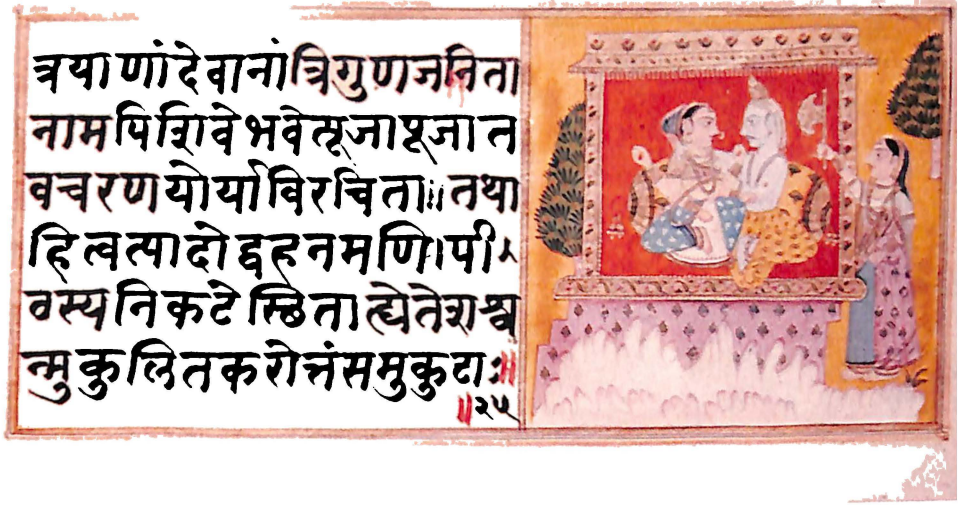 त्रयाणांदेवानांत्रिगुणजनिता
नामपिशिवेभवेत्पूजापूजात
वचरणयोर्याविरचिता॥तथा
हित्वत्पादोद्वहनमणि।पी
वस्यनिकटेस्थिताह्येतेशश्व
न्मुकुलितकरोत्तंसमुकुटाः॥
॥२५